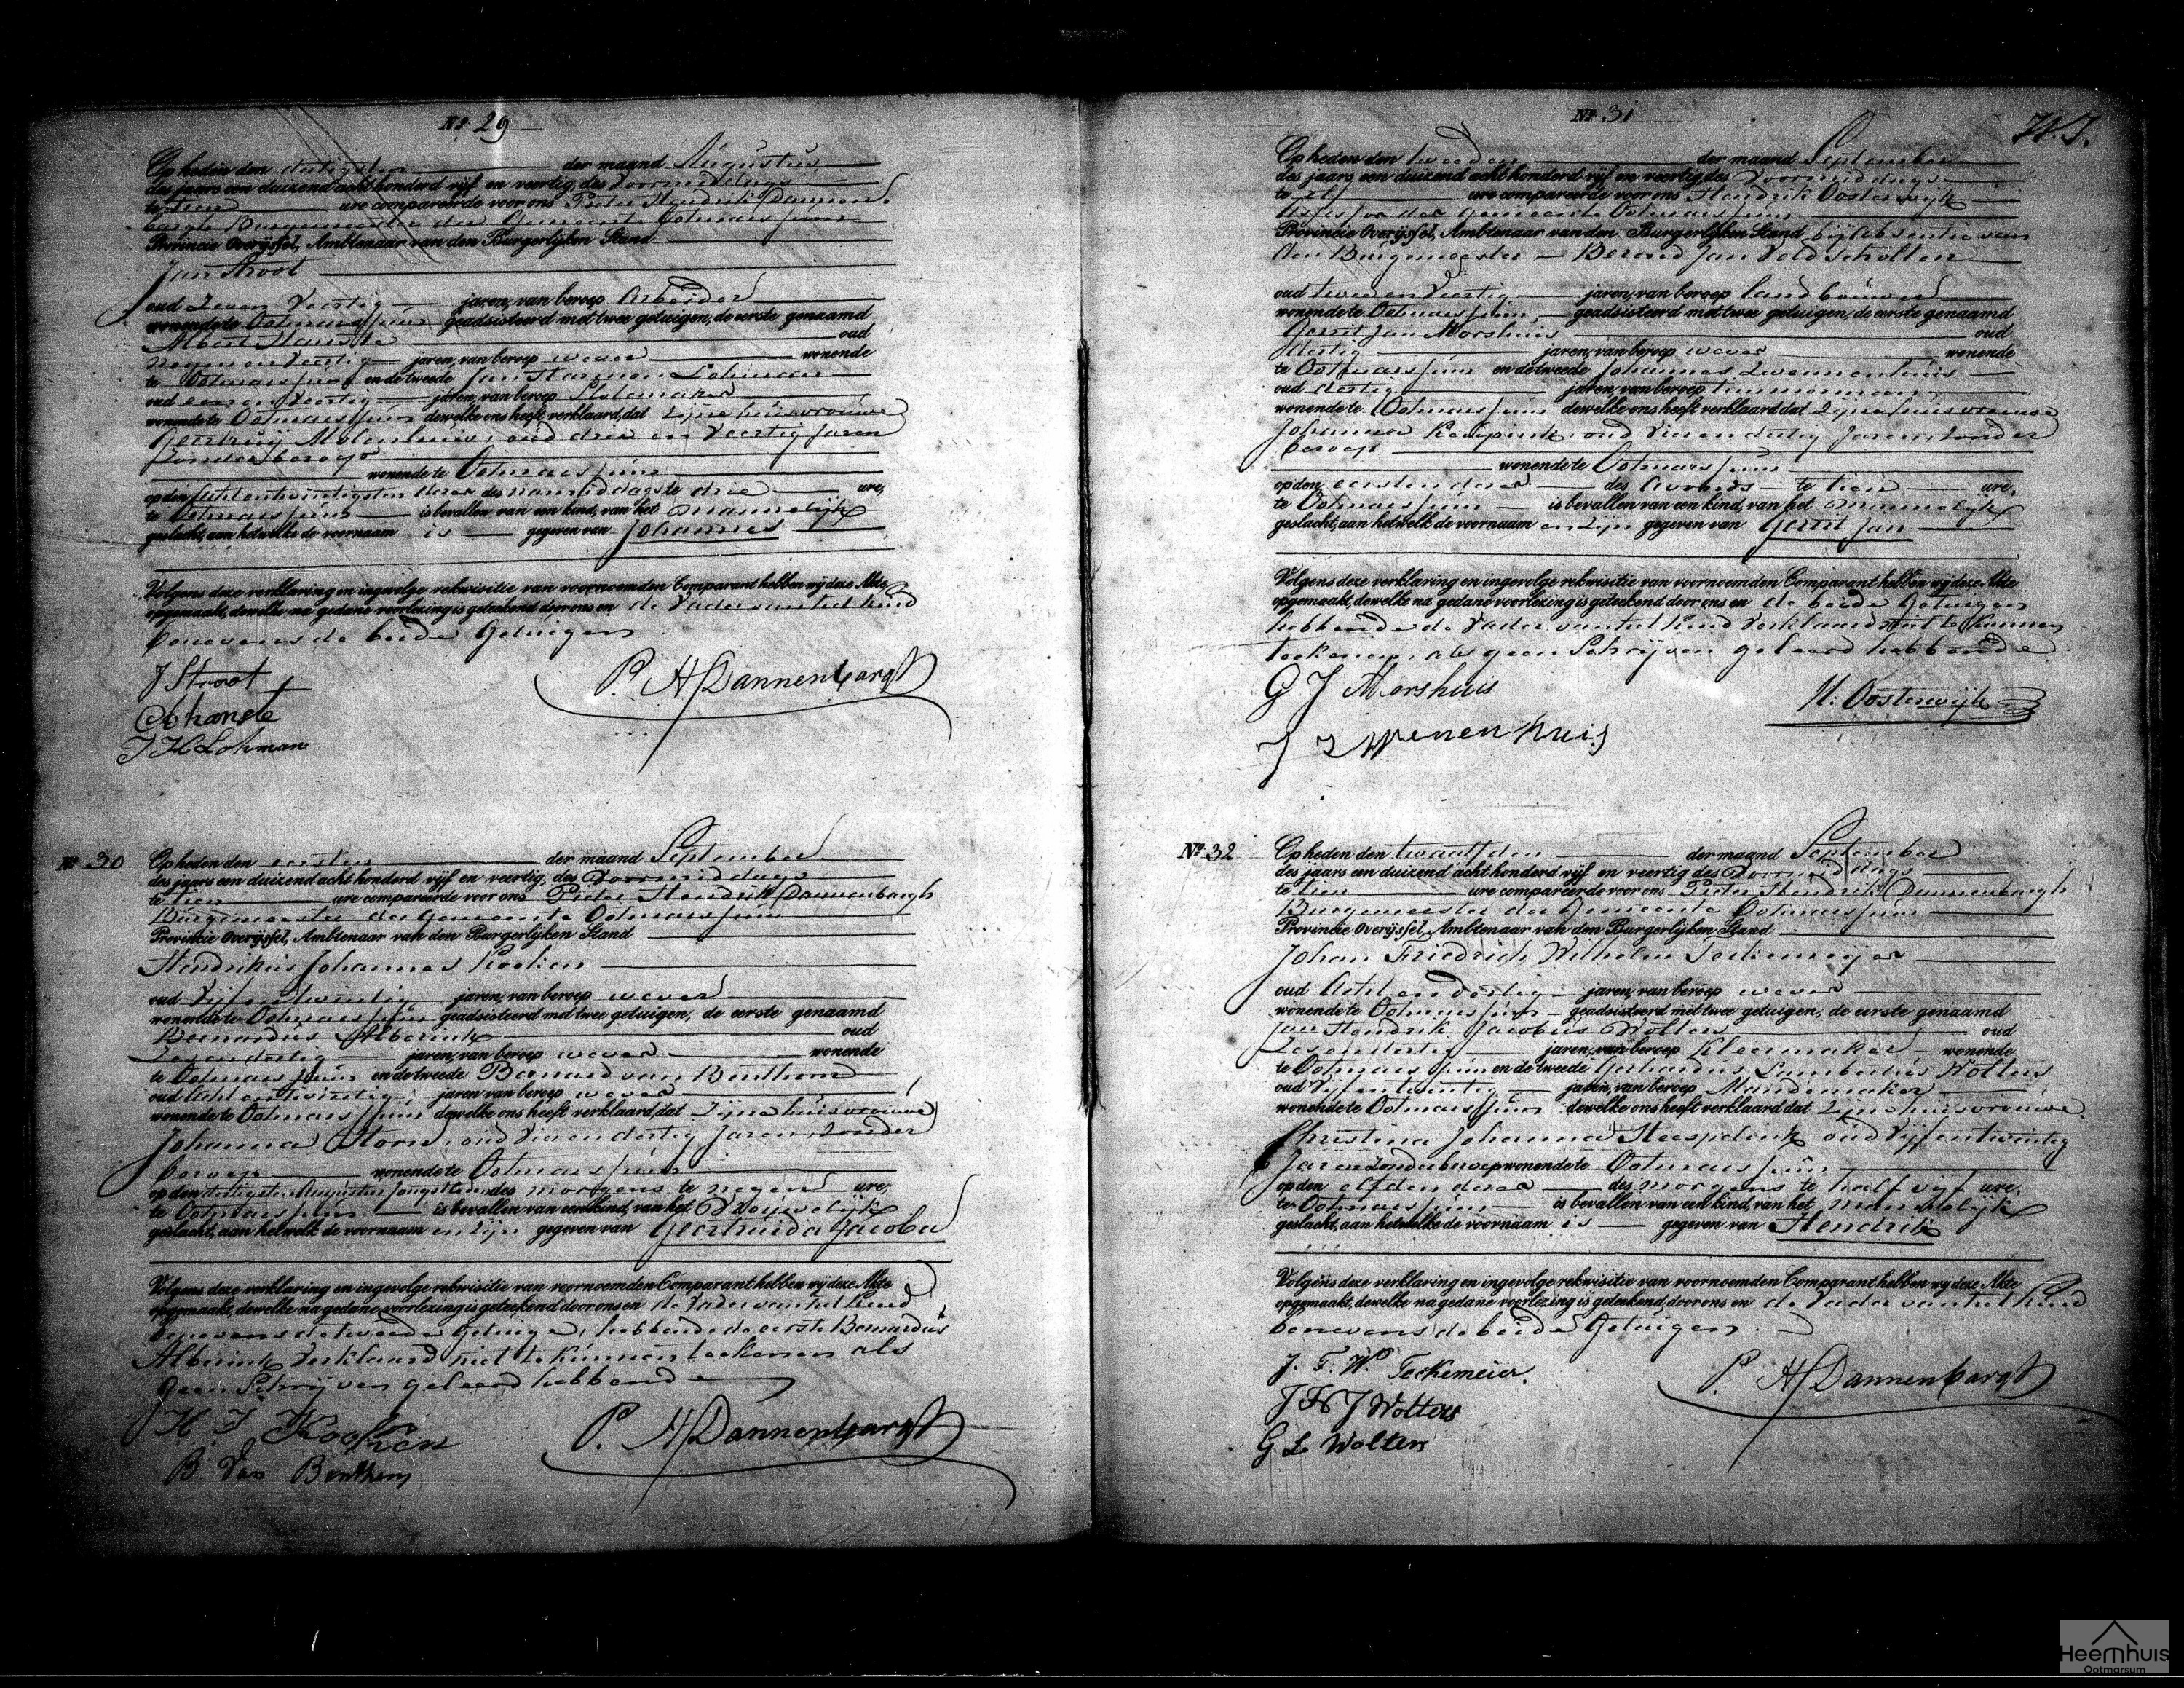 No 29
Op heden den dertigsten der maand Augustus
des jaars een duizend acht honderd vijf en veertig, des Voormiddags
te tien ure compareerde voor ons Pieter Hendrik Dannen-
bargh Burgemeester der Gemeente Ootmarssum
Provincie Overijssel, Ambtenaar van den Burgerlijken Stand
Jan Stroot
oud Zeven Veertig jaren, van beroep Arbeider
wonende te Ootmarssum geadsisteerd met twee getuigen, de eerste genaamd
Albert oud
negen en Veertig jaren, van beroep wever wonende
te Ootmarssum en de tweede Jan Harmen Lohman
oud een en Veertig jaren, van beroep
wonende te Ootmarssum dewelke ons heeft verklaard, dat Zijne huisvrouwe
Geertruij Molenhuis, oud drie en Veertig Jaren
Zonder beroep
wonende te Ootmarssum
op den Acht en twintigsten dezer des namiddags te drie ure,
te Ootmarssum is bevallen van een kind, van het Mannelijk
geslacht, aan hetwelke de voornaam is gegeven van Johannes
Volgens deze verklaring en ingevolge rekwisitie van voornoemden Comparant hebben wij deze Akte
opgemaakt, dewelke na gedane voorlezing is geteekend door ons en de Vader van het Kind
benevens de beide Getuigen
J Stroot
P. H Dannenbargh
J H Lohman
No 30
Op heden den eersten der maand September
des jaars een duizend acht honderd vijf en veertig, des Voormiddags
te tien ure compareerde voor ons Pieter Hendrik Dannenbargh
Burgemeester der Gemeente Ootmarssum
Provincie Overijssel, Ambtenaar van den Burgerlijken Stand
Hendrikus Johannes Kooken
oud Vijf en twintig jaren, van beroep wever
wonende te Ootmarssum geadsisteerd met twee getuigen, de eerste genaamd
Bernardus Alberink oud
Zes en dertig jaren, van beroep wever wonende
te Ootmarssum en de tweede Bernard van Benthem
oud Acht en twintig jaren van beroep wever
wonende te Ootmarssum dewelke ons heeft verklaard, dat Zijne huisvrouwe
Johanna Horn, oud Vier en dertig Jaren, Zonder
beroep wonende te Ootmarssum
op den dertigsten Augustus Jongstleden des morgens te negen ure,
te Ootmarssum is bevallen van een kind, van het Vrouwelijk
geslacht, aan hetwelk de voornaam en zijn gegeven van Geertruida Jacoba
Volgens deze verklaring en ingevolge rekwisitie van voornoemden Comparant hebben wij deze Akte
opgemaakt, dewelke na gedane voorlezing is geteekend door ons en de Vader van het Kind
benevens de tweede Getuige, hebbende de eerste Bernardus
Alberink Verklaard niet te kunnen teekenen als
geen Schrijven geleerd hebbende
H J Kooken
P. H Dannenbargh
B Van Benthem
No 31
Op heden den tweeden der maand September
des jaars een duizend acht honderd vijf en veertig, des Voormiddags
te elf ure compareerde voor ons Hendrik Oosterwijk
Assessor der Gemeente Ootmarssum
Provincie Overijssel, Ambtenaar van den Burgerlijken Stand bij absentie van
den Burgemeester Berend Jan Veldscholten
oud twee en Veertig jaren, van beroep landbouwer
wonende te Ootmarssum, geadsisteerd met twee getuigen, de eerste genaamd
Gerrit Jan Morshuis oud
dertig jaren, van beroep wever wonende
te Ootmarssum en de tweede Johannes Zwenenhuis
oud dertig jaren, van beroep timmerman
wonende te Ootmarssum dewelke ons heeft verklaard dat Zijne huisvrouwe
Johanna oud Vier en dertig Jaren, Zonder
beroep
wonende te Ootmarssum
op den eersten dezer des Avonds te tien ure,
te Ootmarssum is bevallen van een kind, van het Mannelijk
geslacht, aan hetwelk de voornaam en zijn gegeven van Gerrit Jan
Volgens deze verklaring en ingevolge rekwisitie van voornoemden Comparant hebben wij deze Akte
opgemaakt, dewelke na gedane voorlezing is geteekend door ons en de beide Getuigen
hebbende de Vader van het kind Verklaard niet te kunnen
teekenen, als geen Schrijven geleerd hebbende
G J Morshuis
H: Oosterwijk
J Zwenenhuis
No 32
Op heden den twaalfden der maand September
des jaars een duizend acht honderd vijf en veertig des Voormiddags
te tien ure compareerde voor ons Pieter Hendrik Dannenbargh
Burgemeester der Gemeente Ootmarssum
Provincie Overijssel, Ambtenaar van den Burgerlijken Stand
Johan Friedrich Wilhelm Teckemeijer
oud Acht en dertig jaren, van beroep wever
wonende te Ootmarssum geadsisteerd met twee getuigen, de eerste genaamd
Jan Hendrik Jacobus Wolters oud
Zes en dertig jaren, van beroep Kleermaker wonende
te Ootmarssum en de tweede Gerhardus Lambertus Wolters
oud Vijf en twintig jaren, van beroep Mandemaker
wonende te Ootmarssum dewelke ons heeft verklaard dat Zijne huisvrouwe
Christina Johanna Heespelink oud Vijf en twintig
Jaren Zonder beroep wonende te Ootmarssum
op den elfden dezer des morgens te half vijf ure,
te Ootmarssum is bevallen van een kind, van het mannelijk
geslacht, aan hetwelke de voornaam is gegeven van Hendrik
Volgens deze verklaring en ingevolge rekwisitie van voornoemden Comparant hebben wij deze Akte
opgemaakt, dewelke na gedane voorlezing is geteekend door ons en de Vader van het Kind
benevens de beide Getuigen.
J. F. W. Teckemeier.
P. H Dannenbargh
J H J Wolters
G L Wolters
Heemhuis
Ootmarsum